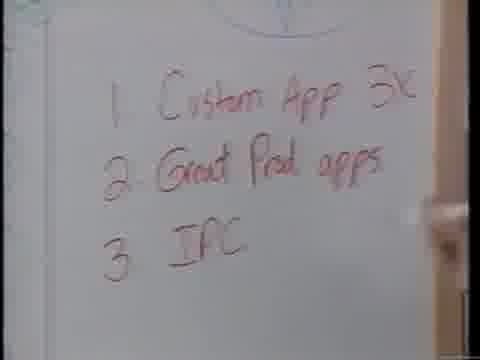 1 Custom App 3x
2. Great Prod apps
3 IPC